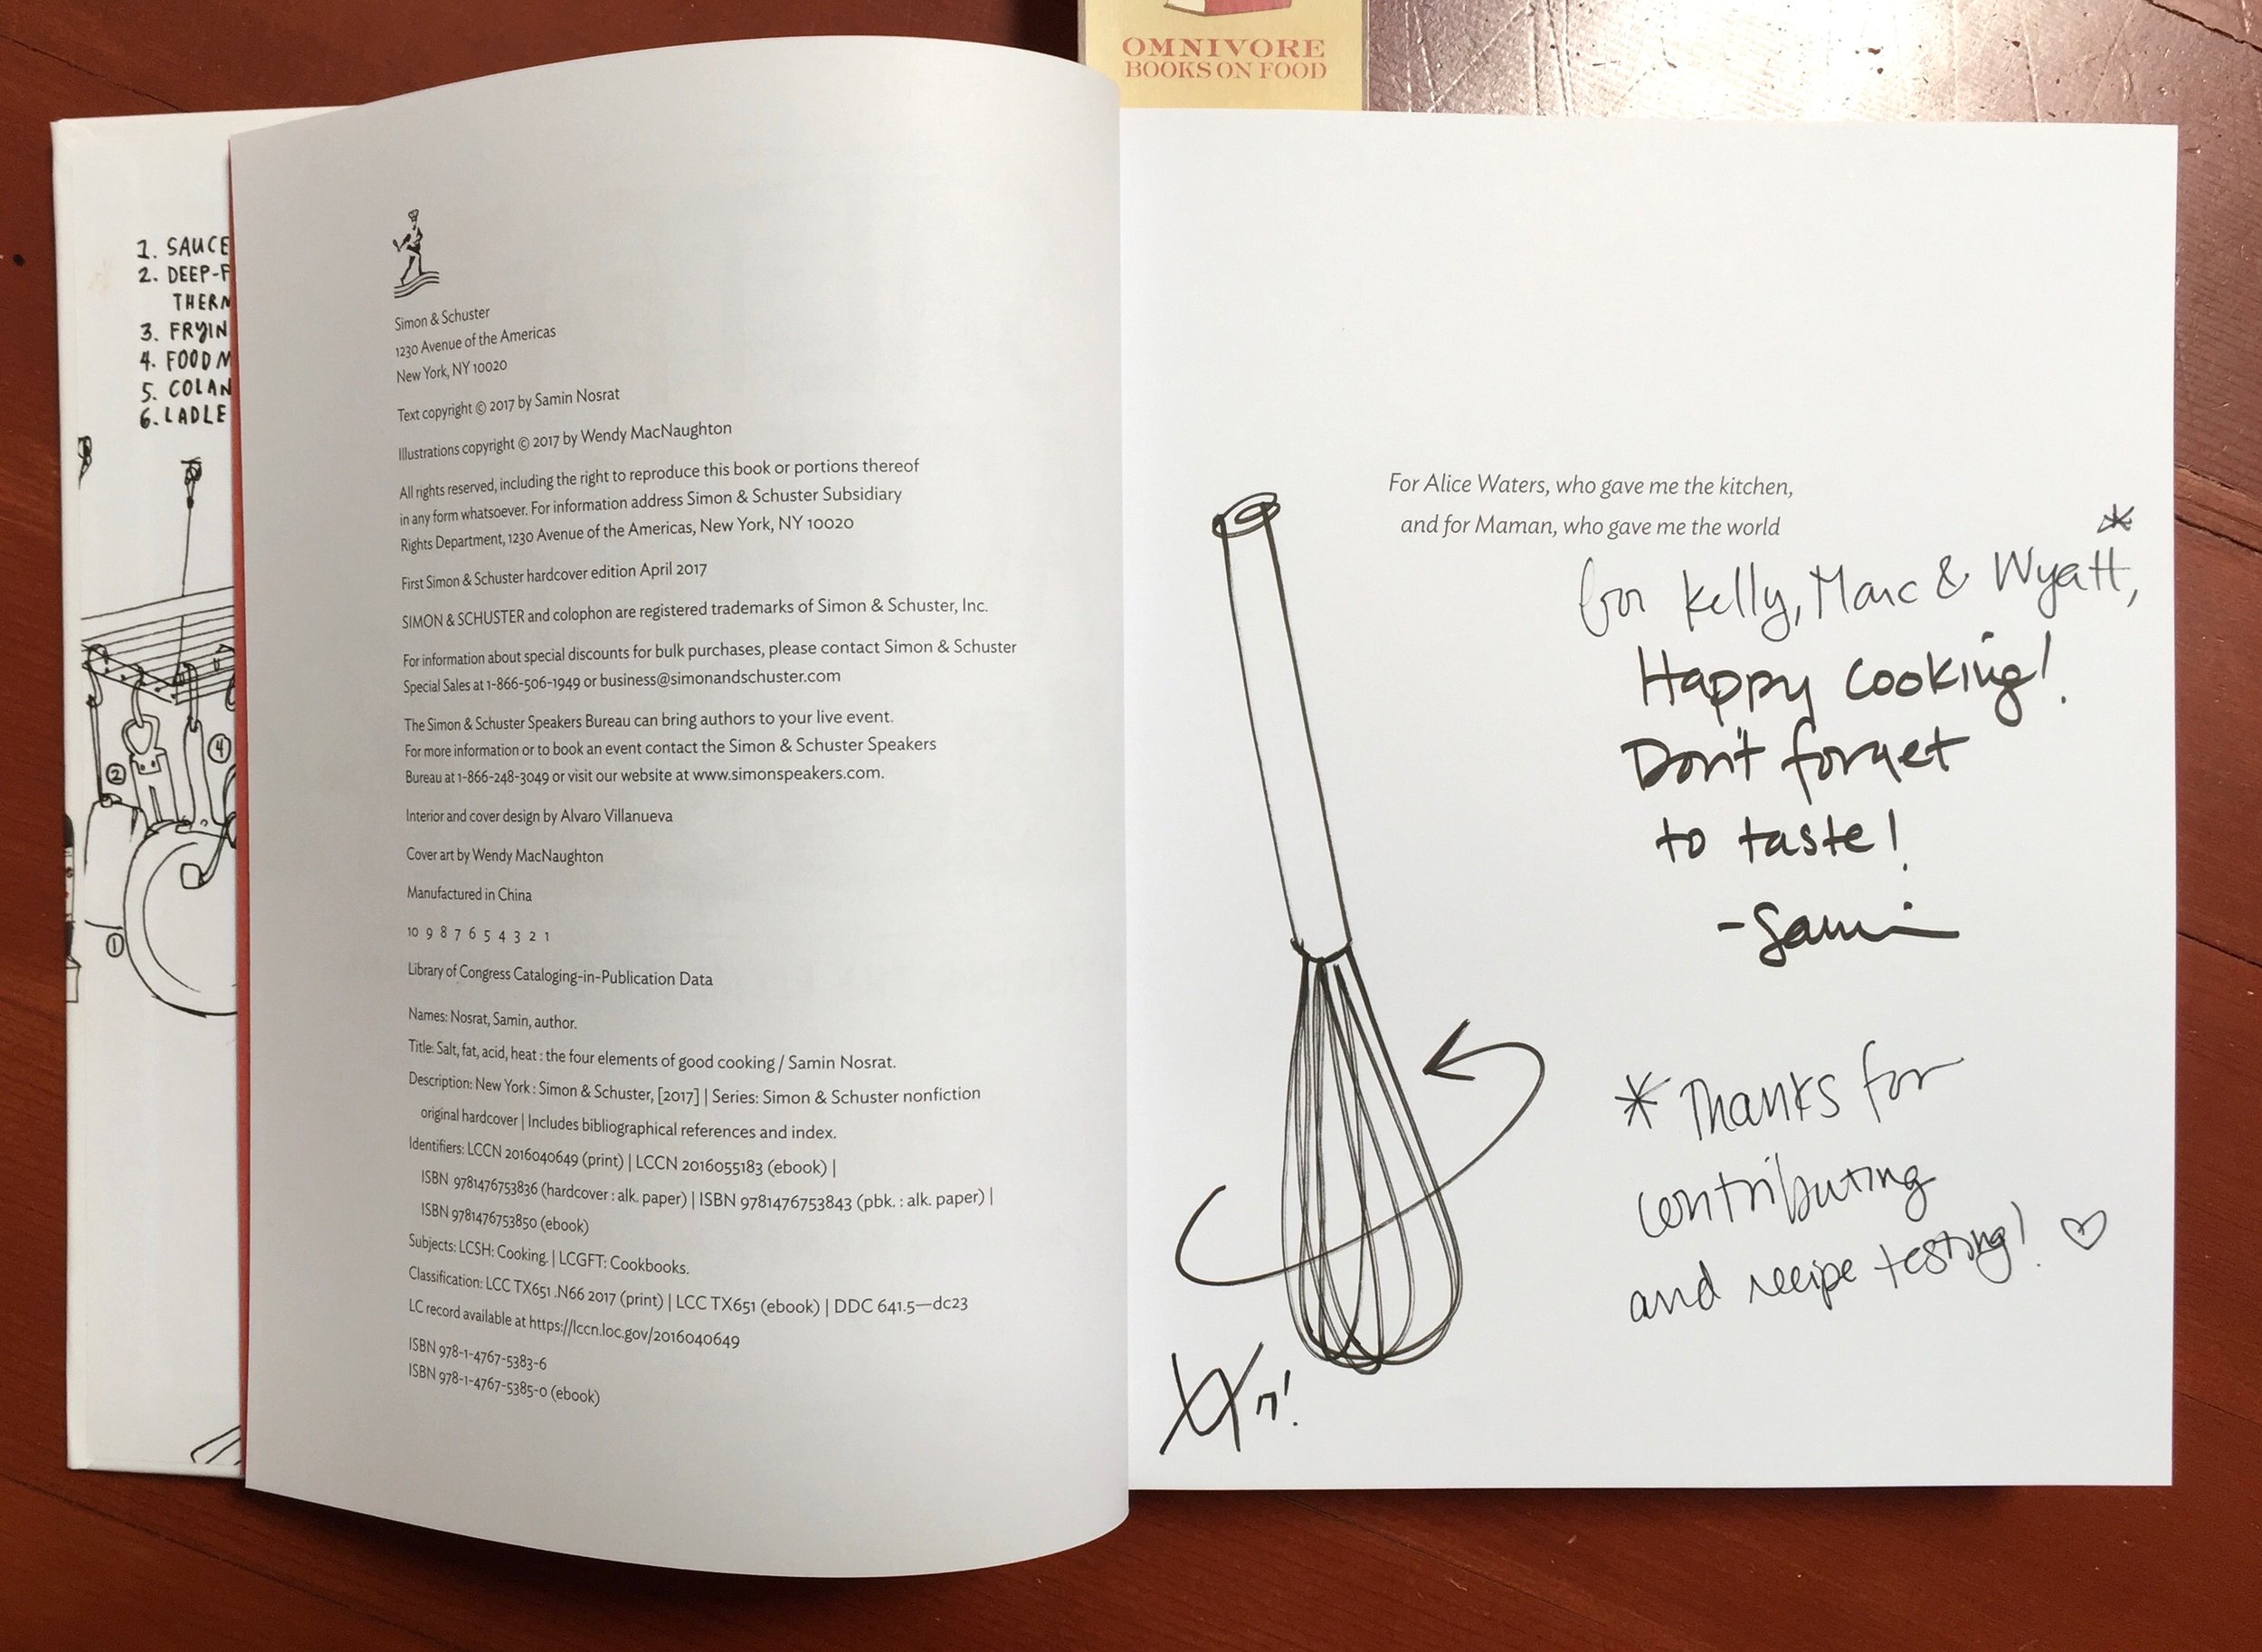 OMNIVORE
BOOKS ON FOOD
1. SAUCE
2. DEEP-F
THERM
3. FRYIN
4. FOOD M
5. COLAN
6. LADLE
2
4
1
Simon & Schuster
1230 Avenue of the Americas
New York, NY 10020
Text copyright © 2017 by Samin Nosrat
Illustrations copyright © 2017 by Wendy MacNaughton
All rights reserved, including the right to reproduce this book or portions thereof
in any form whatsoever. For information address Simon & Schuster Subsidiary
Rights Department, 1230 Avenue of the Americas, New York, NY 10020
First Simon & Schuster hardcover edition April 2017
SIMON & SCHUSTER and colophon are registered trademarks of Simon & Schuster, Inc.
For information about special discounts for bulk purchases, please contact Simon & Schuster
Special Sales at 1-866-506-1949 or business@simonandschuster.com
The Simon & Schuster Speakers Bureau can bring authors to your live event.
For more information or to book an event contact the Simon & Schuster Speakers
Bureau at 1-866-248-3049 or visit our website at www.simonspeakers.com.
Interior and cover design by Alvaro Villanueva
Cover art by Wendy MacNaughton
Manufactured in China
10 9 8 7 6 5 4 3 2 1
Library of Congress Cataloging-in-Publication Data
Names: Nosrat, Samin, author.
Title: Salt, fat, acid, heat : the four elements of good cooking / Samin Nosrat.
Description: New York : Simon & Schuster, [2017] | Series: Simon & Schuster nonfiction
original hardcover | Includes bibliographical references and index.
Identifiers: LCCN 2016040649 (print) | LCCN 2016055183 (ebook) |
ISBN 9781476753836 (hardcover : alk. paper) | ISBN 9781476753843 (pbk. : alk. paper) |
ISBN 9781476753850 (ebook)
Subjects: LCSH: Cooking. | LCGFT: Cookbooks.
Classification: LCC TX651 .N66 2017 (print) | LCC TX651 (ebook) | DDC 641.5—dc23
LC record available at https://lccn.loc.gov/2016040649
ISBN 978-1-4767-5383-6
ISBN 978-1-4767-5385-0 (ebook)
For Alice Waters, who gave me the kitchen,
and for Maman, who gave me the world
for Kelly, Marc & Wyatt,*
Happy Cooking!
Don't forget
to taste!
-Samin
*Thanks for
contributing
and recipe testing! ♡